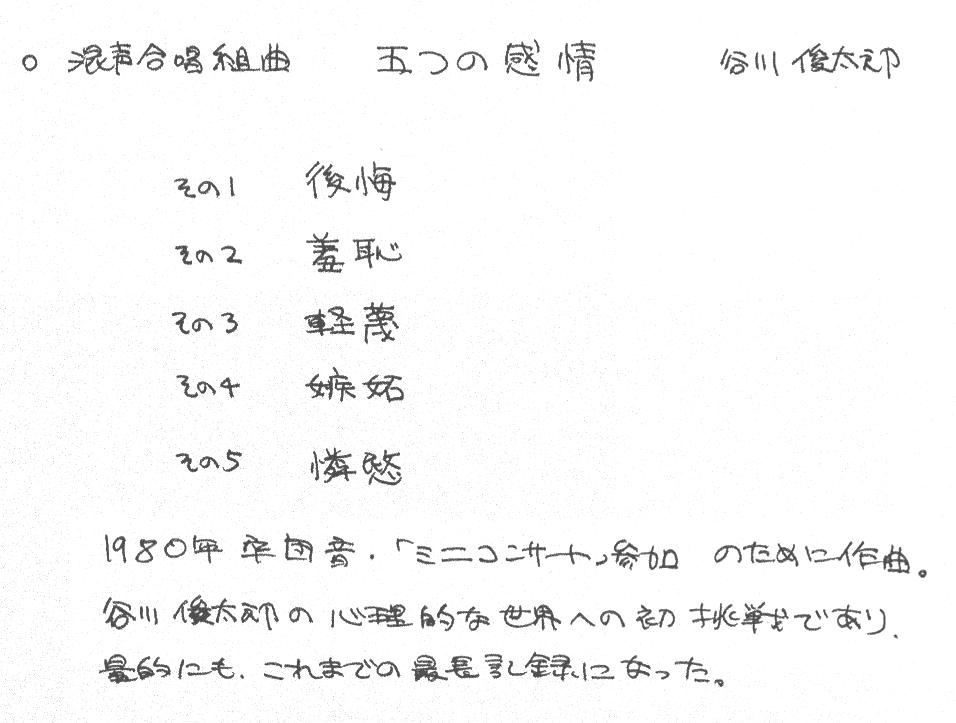 ○ 混声合唱組曲 五つの感情 谷川俊太郎
その1 後悔
その2 羞恥
その3 軽蔑
その4 嫉妬
その5 憐愍
1980年 卒団音.「ミニコンサート」参加 のために作曲。
谷川俊太郎の心理的な世界への初挑戦であり、
量的にも、これまでの最長記録になった。